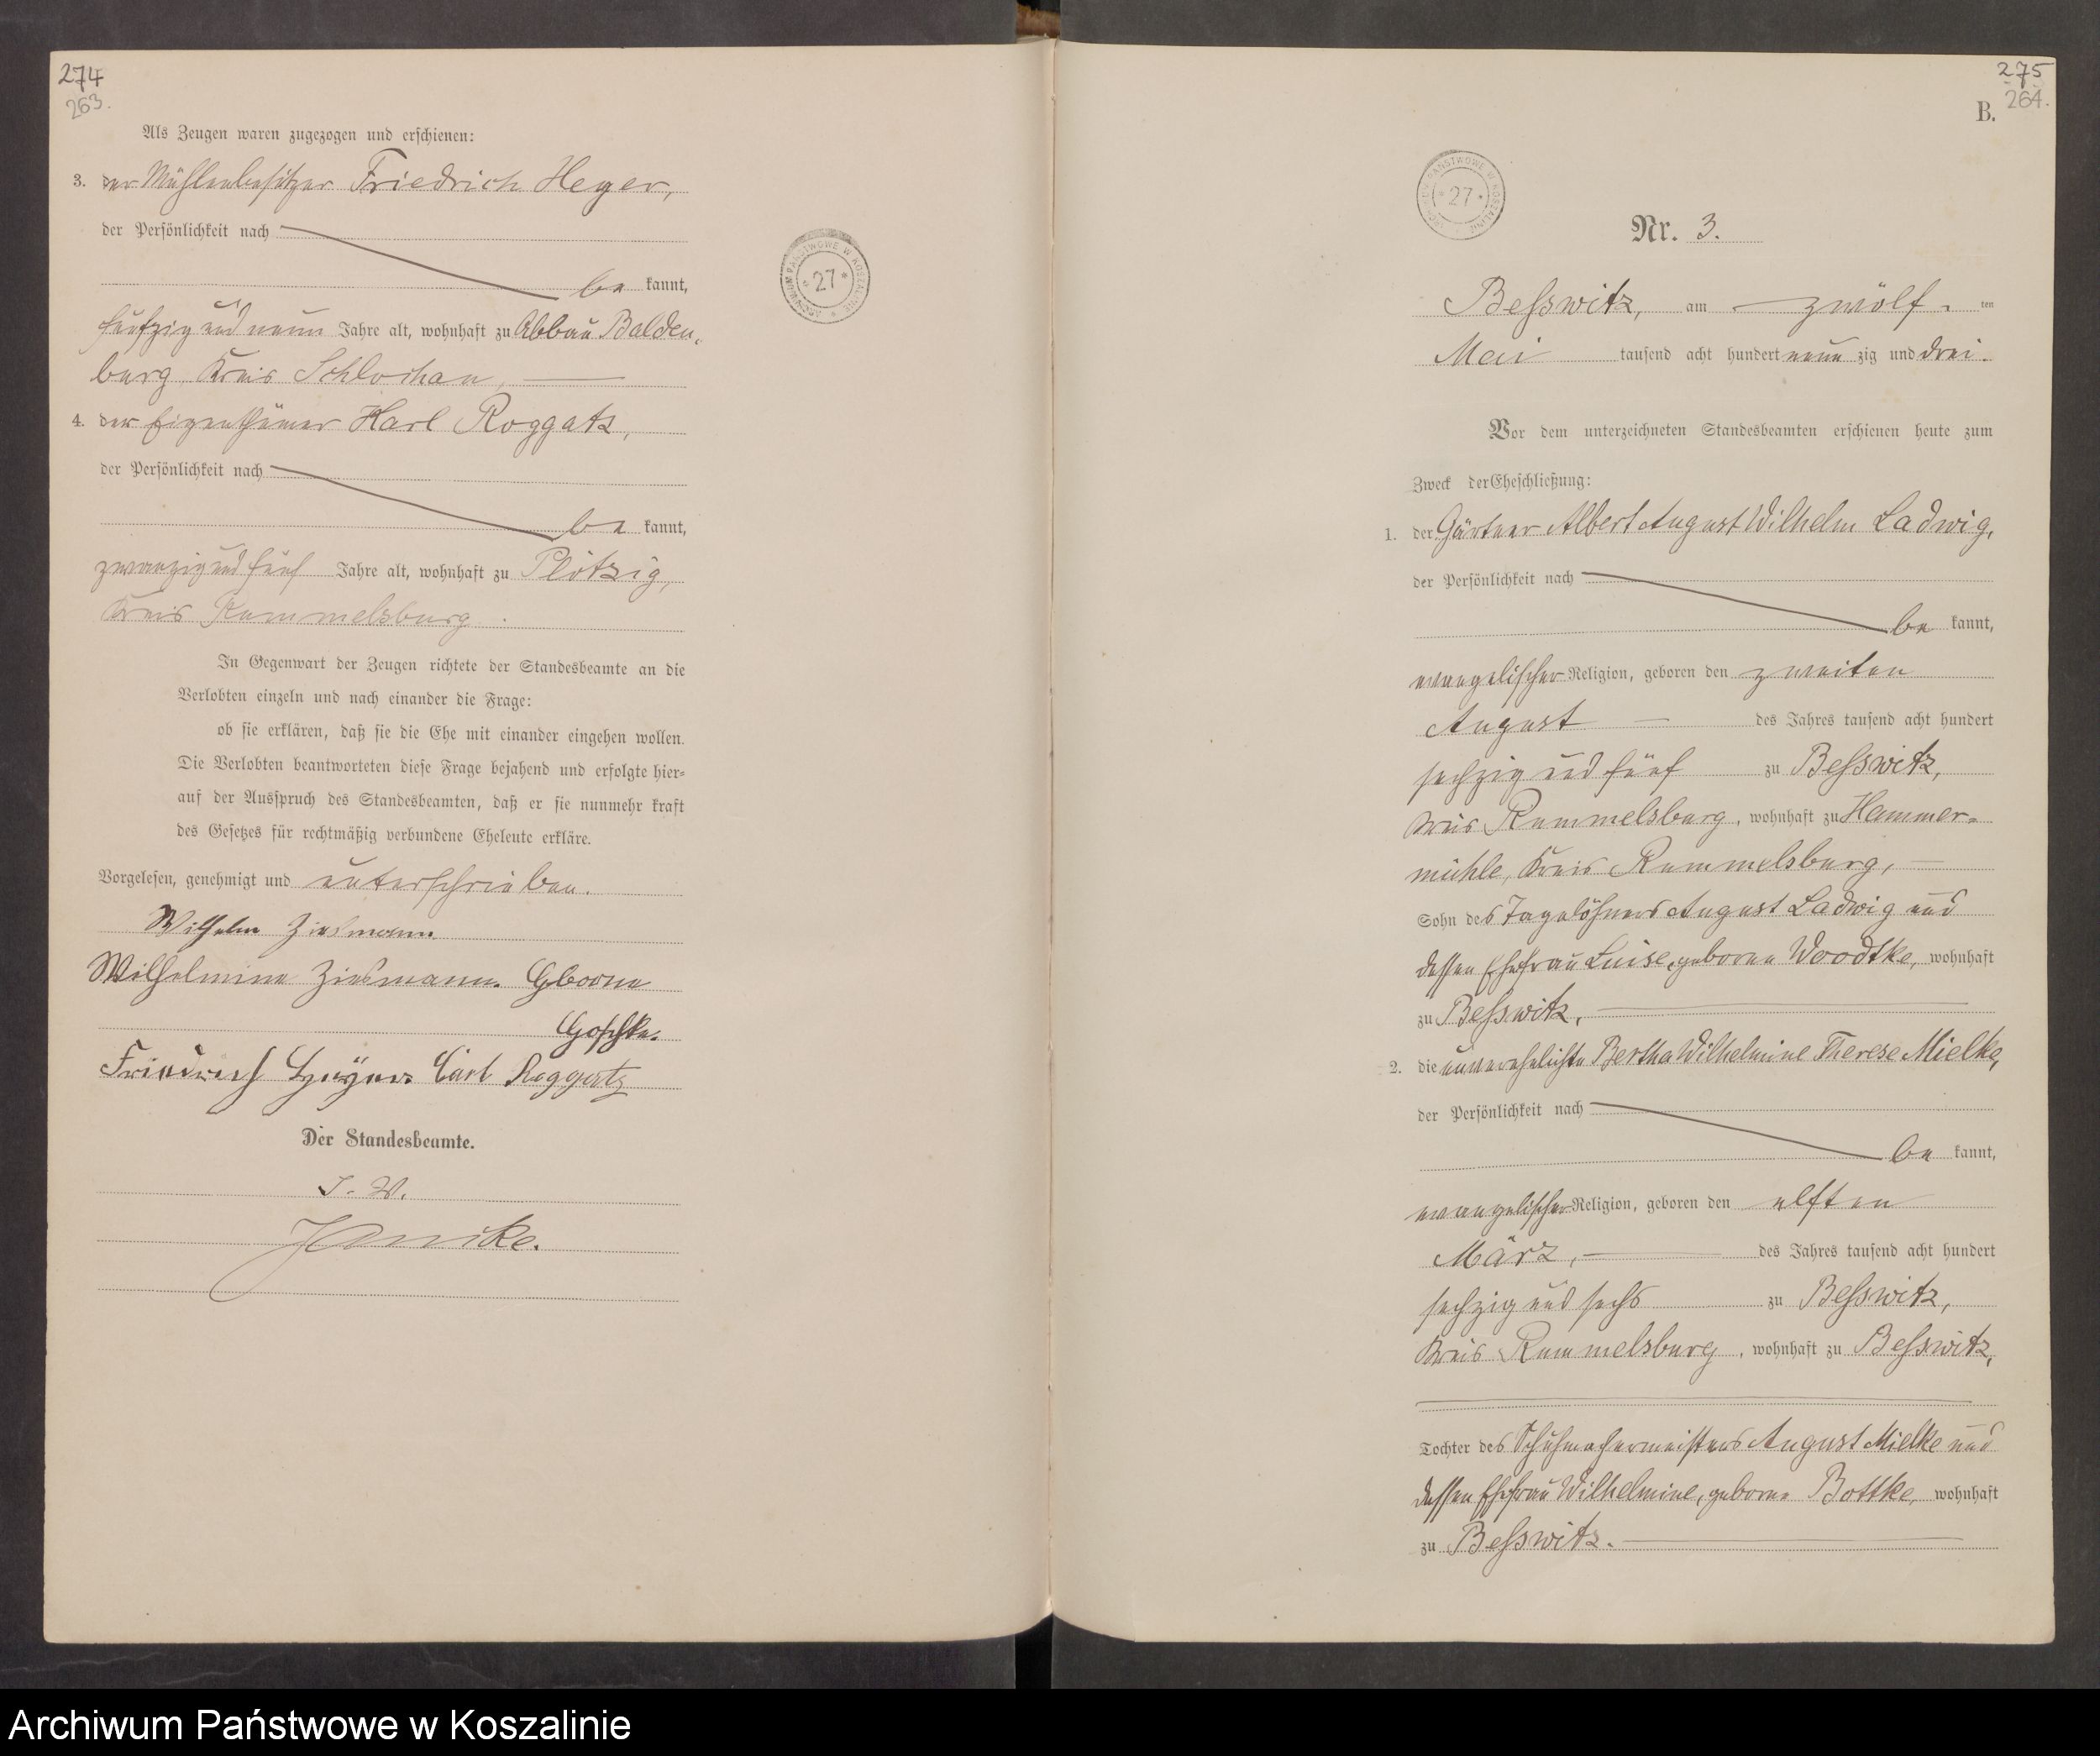 274
263.
Als Zeugen waren zugezogen und erschienen:
3. der Mühlenbesitzer Friedrich Heyer,
der Persönlichkeit nach
be kannt,
fünfzig und neun Jahre alt, wohnhaft zu Abbau Balden-
burg, Kreis Schlochau,
4. der Eigenthümer Karl Roggatz,
der Persönlichkeit nach
be kannt,
zwanzig und fünf Jahre alt, wohnhaft zu Plötzig,
Kreis Rummelsburg.
In Gegenwart der Zeugen richtete der Standesbeamte an die
Verlobten einzeln und nach einander die Frage:
ob sie erklären, daß sie die Ehe mit einander eingehen wollen.
Die Verlobten beantworteten diese Frage bejahend und erfolgte hier-
auf der Ausspruch des Standesbeamten, daß er sie nunmehr kraft
des Gesetzes für rechtmäßig verbundene Eheleute erkläre.
Vorgelesen, genehmigt und unterschrieben.
Wilhelm Ziesmann
Wilhelmine Ziesmann. Geborne
Goschke.
Friedrich Carl Roggatz
Der Standesbeamte.
I. V.
27
275
264.
B.
27
Nr. 3.
Besswitz, am zwölf ten
Mai tausend acht hundert neun zig und drei.
Vor dem unterzeichneten Standesbeamten erschienen heute zum
Zweck der Eheschließung:
1. der Gärtner Albert August Wilhelm Ladwig,
der Persönlichkeit nach
be kannt,
evangelischer Religion, geboren den zweiten
August des Jahres tausend acht hundert
sechzig und fünf zu Besswitz,
Kreis Rummelsburg, wohnhaft zu Hammer-
mühle, Kreis Rummelsburg,
Sohn des Tagelöhners August Ladwig und
dessen Ehefrau Luise, geborene Woodtke, wohnhaft
zu Besswitz,
2. die unverehelichte Bertha Wilhelmine Therese Mielke,
der Persönlichkeit nach
be kannt,
evangelischer Religion, geboren den elften
März, des Jahres tausend acht hundert
sechzig und sechs zu Besswitz,
Kreis Rummelsburg, wohnhaft zu Besswitz,
Tochter des Schuhmachermeisters August Mielke und
dessen Ehefrau Wilhelmine, geborne Bottke, wohnhaft
zu Besswitz.
Archiwum Państwowe w Koszalinie